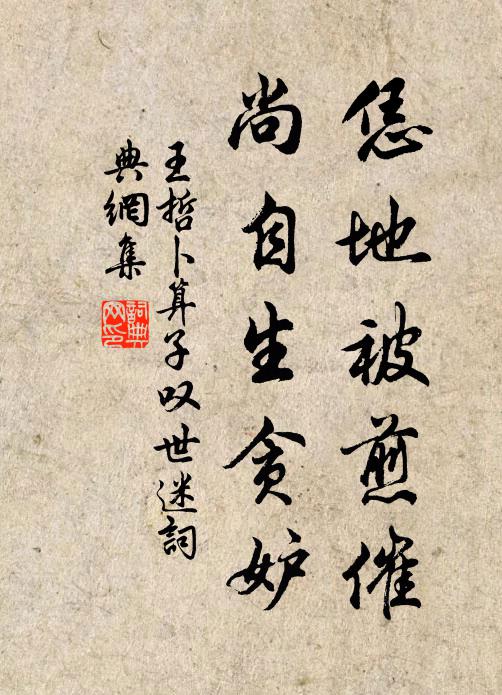 恁地被煎催
尚自生貪妒
王哲卜算子叹世迷詞
典網集
詞典
网印